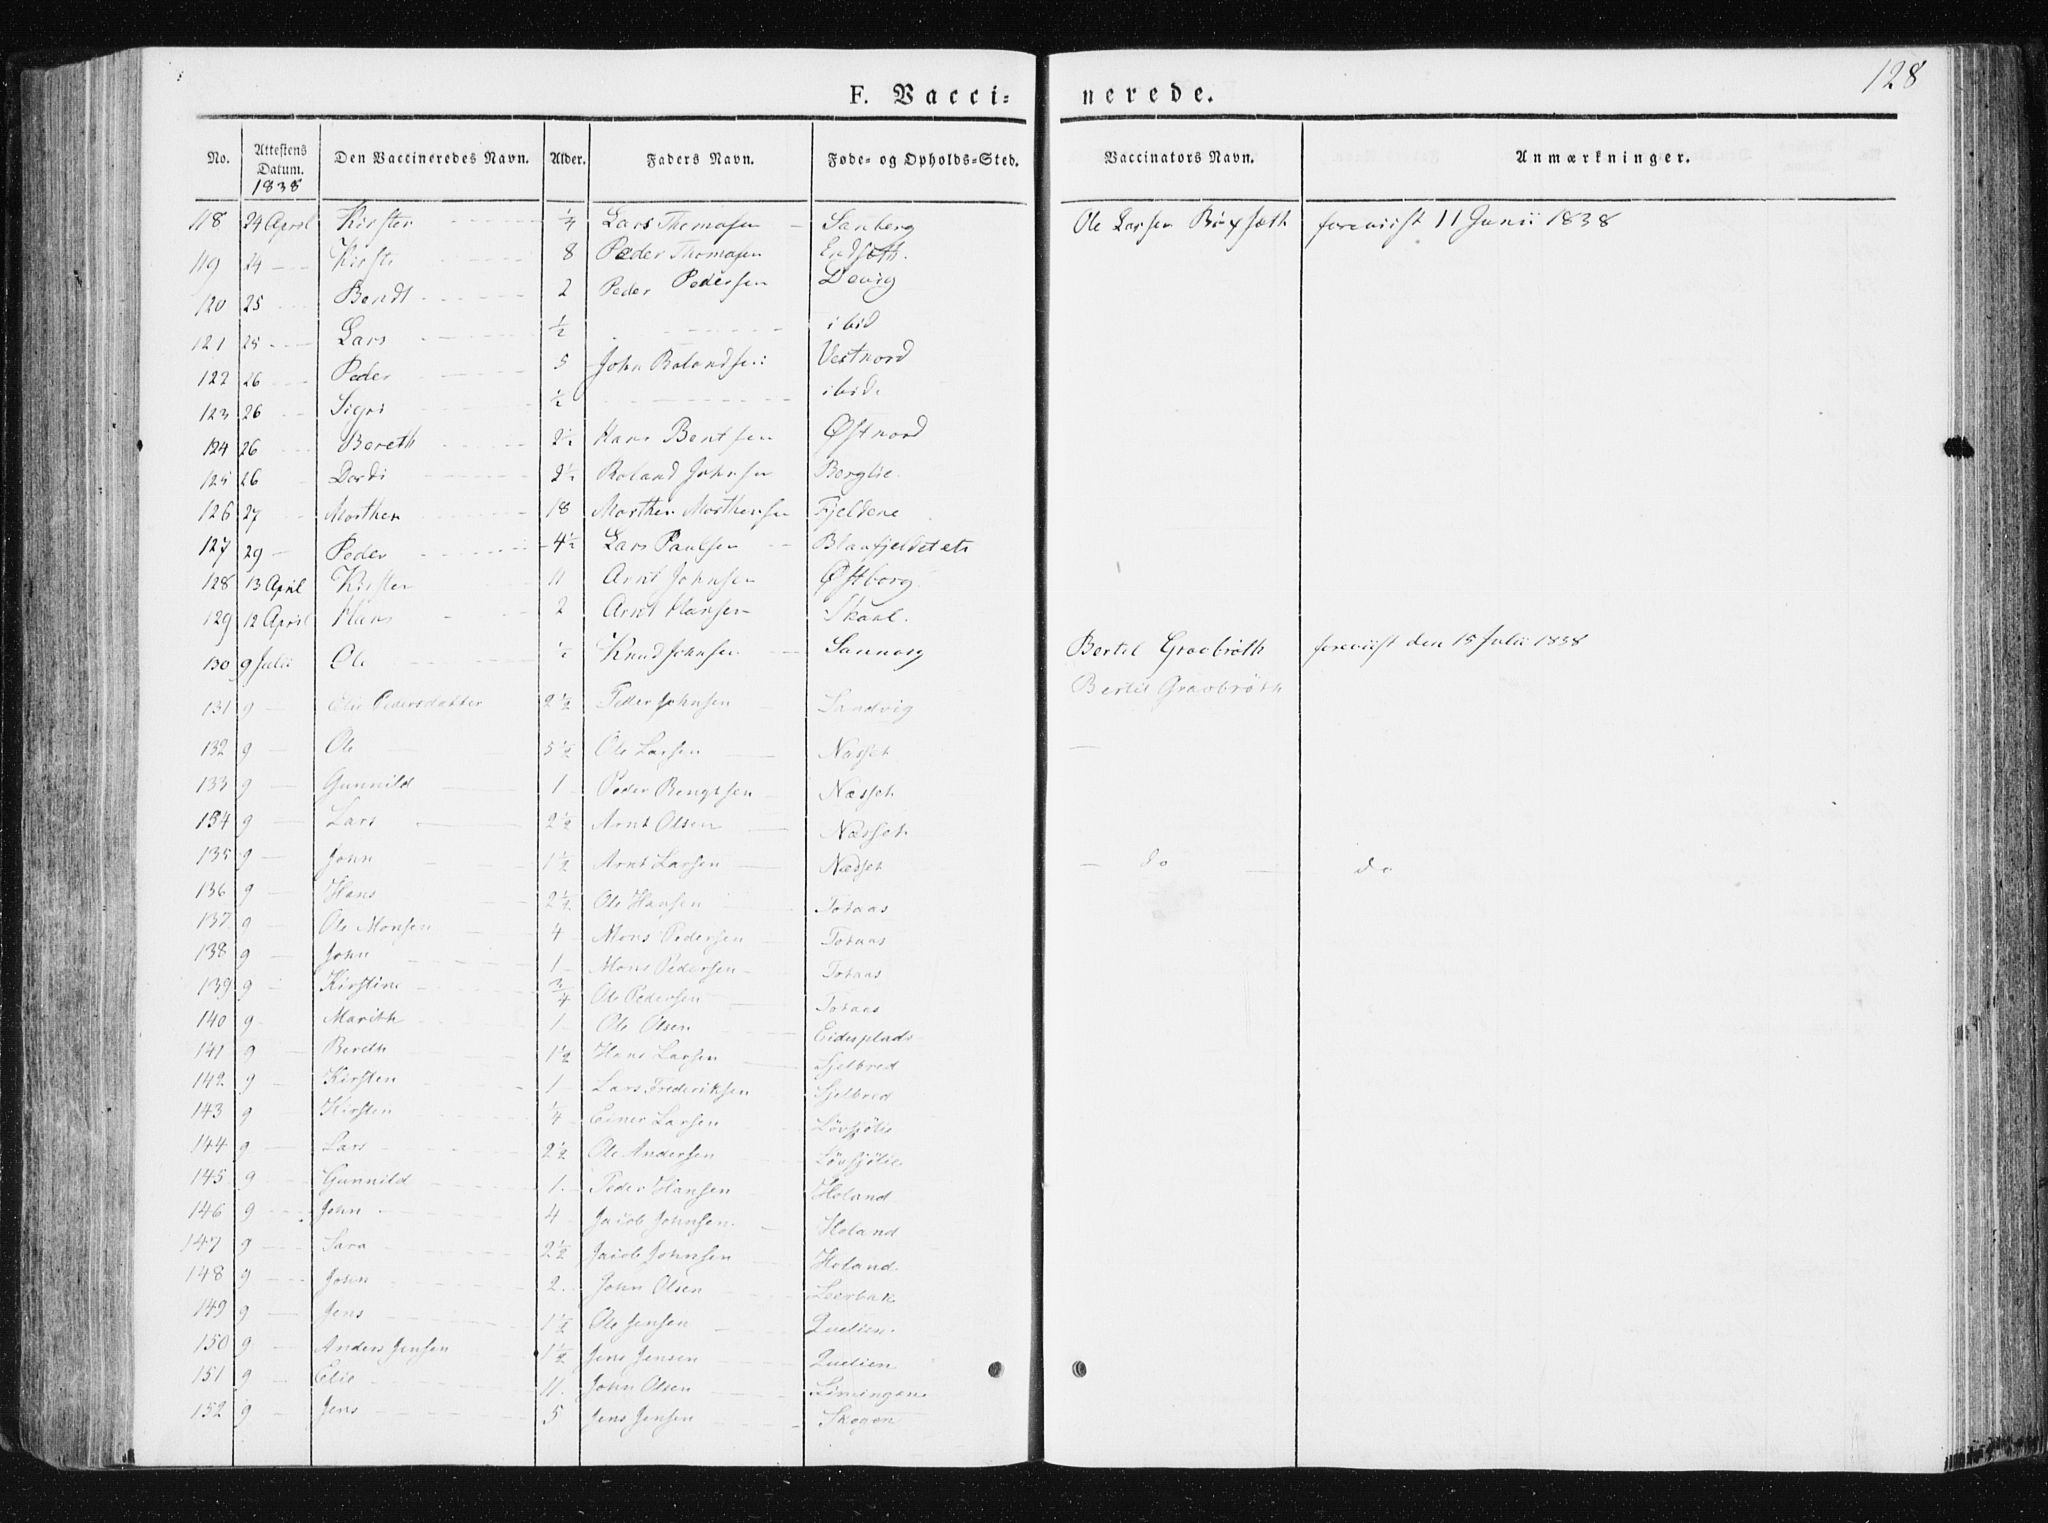 128
F. Vacci-nerede.
No. Attestens Datum. Den Vaccineredes Navn. Alder. Faders Navn. Føde- og Opholds-Sted. Vaccinators Navn. Anmærkninger.
1838
118 24 April Kirsten ¼ Lars Thomasen Sanberg Ole Larsen foreviist 11 Junii 1838
119 24 Kirsti 8 Peder Thomasen
120 25 Bendt 2 Peder Pedersen Devig
121 25 Lars ½ ibid
122 26 Peder 5 John Rolandsen Vestnord
123 26 Sigri ½ ibid.
124 26 Bereth 2½ Hans Bentsen Østnord
125 26 Dordi 2½ Roland Johnsen Berglie.
126 27 Morthen 18 Morthen Morthensen Fjeldene
127 29 Peder 4½ Lars Paulsen
128 13 April Kirsten 11 Arnt Johnsen Østborg.
129 12 April Hans 2 Arnt Hansen
130 9 Julii Ole ½ Knud Johnsen Sannes Bertil Graabrøth foreviist den 15 Julii 1838
131 9 Elie Pedersdatter 2½ Peder Johnsen Sandvig Bertil Graabrøth
132 9 Ole 5½ Ole Larsen Næsset
133 9 Gunnild 1 Peder Bengtsen Næsset
134 9 Lars 2½ Arnt Olsen Næsset
135 9 John 1½ Arnt Larsen Næsset do do
136 9 Hans 2½ Ole Hansen Totaas
137 9 Ole Monsen 4 Mons Pedersen Totaas
138 9 John 1 Mons Pedersen Totaas
139 9 Kirstine ¾ Ole Pedersen Totaas
140 9 Marith 1 Ole Olsen Eidesplads
141 9 Bereth 1½ Hans Larsen Sjelbred
142 9 Kirsten 1 Lars Frederiksen Sjelbred
143 9 Kirsten ¼ Einer Larsen Løvsjølie
144 9 Lars 2½ Ole Andersen Løvsjølie
145 9 Gunnild 1 Peder Hansen Holand
146 9 John 4 Jacob Johnsen Holand
147 9 Sara 2½ Jacob Johnsen Holand.
148 9 John 2 John Olsen Leerbak
149 9 Jens 1½ Ole Jensen Quelien.
150 9 Anders Jensen 1½ Jens Jensen Quelien
151 9 Elie 11 John Olsen Limingen
152 9 Jens 5 Jens Jensen Skogen